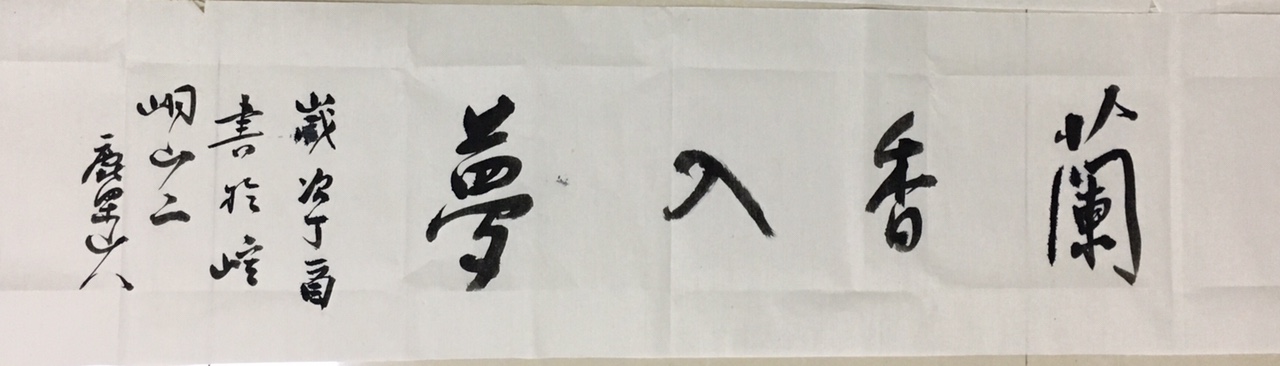 蘭香入夢
歲次丁酉
書於崆
峒山二
山人